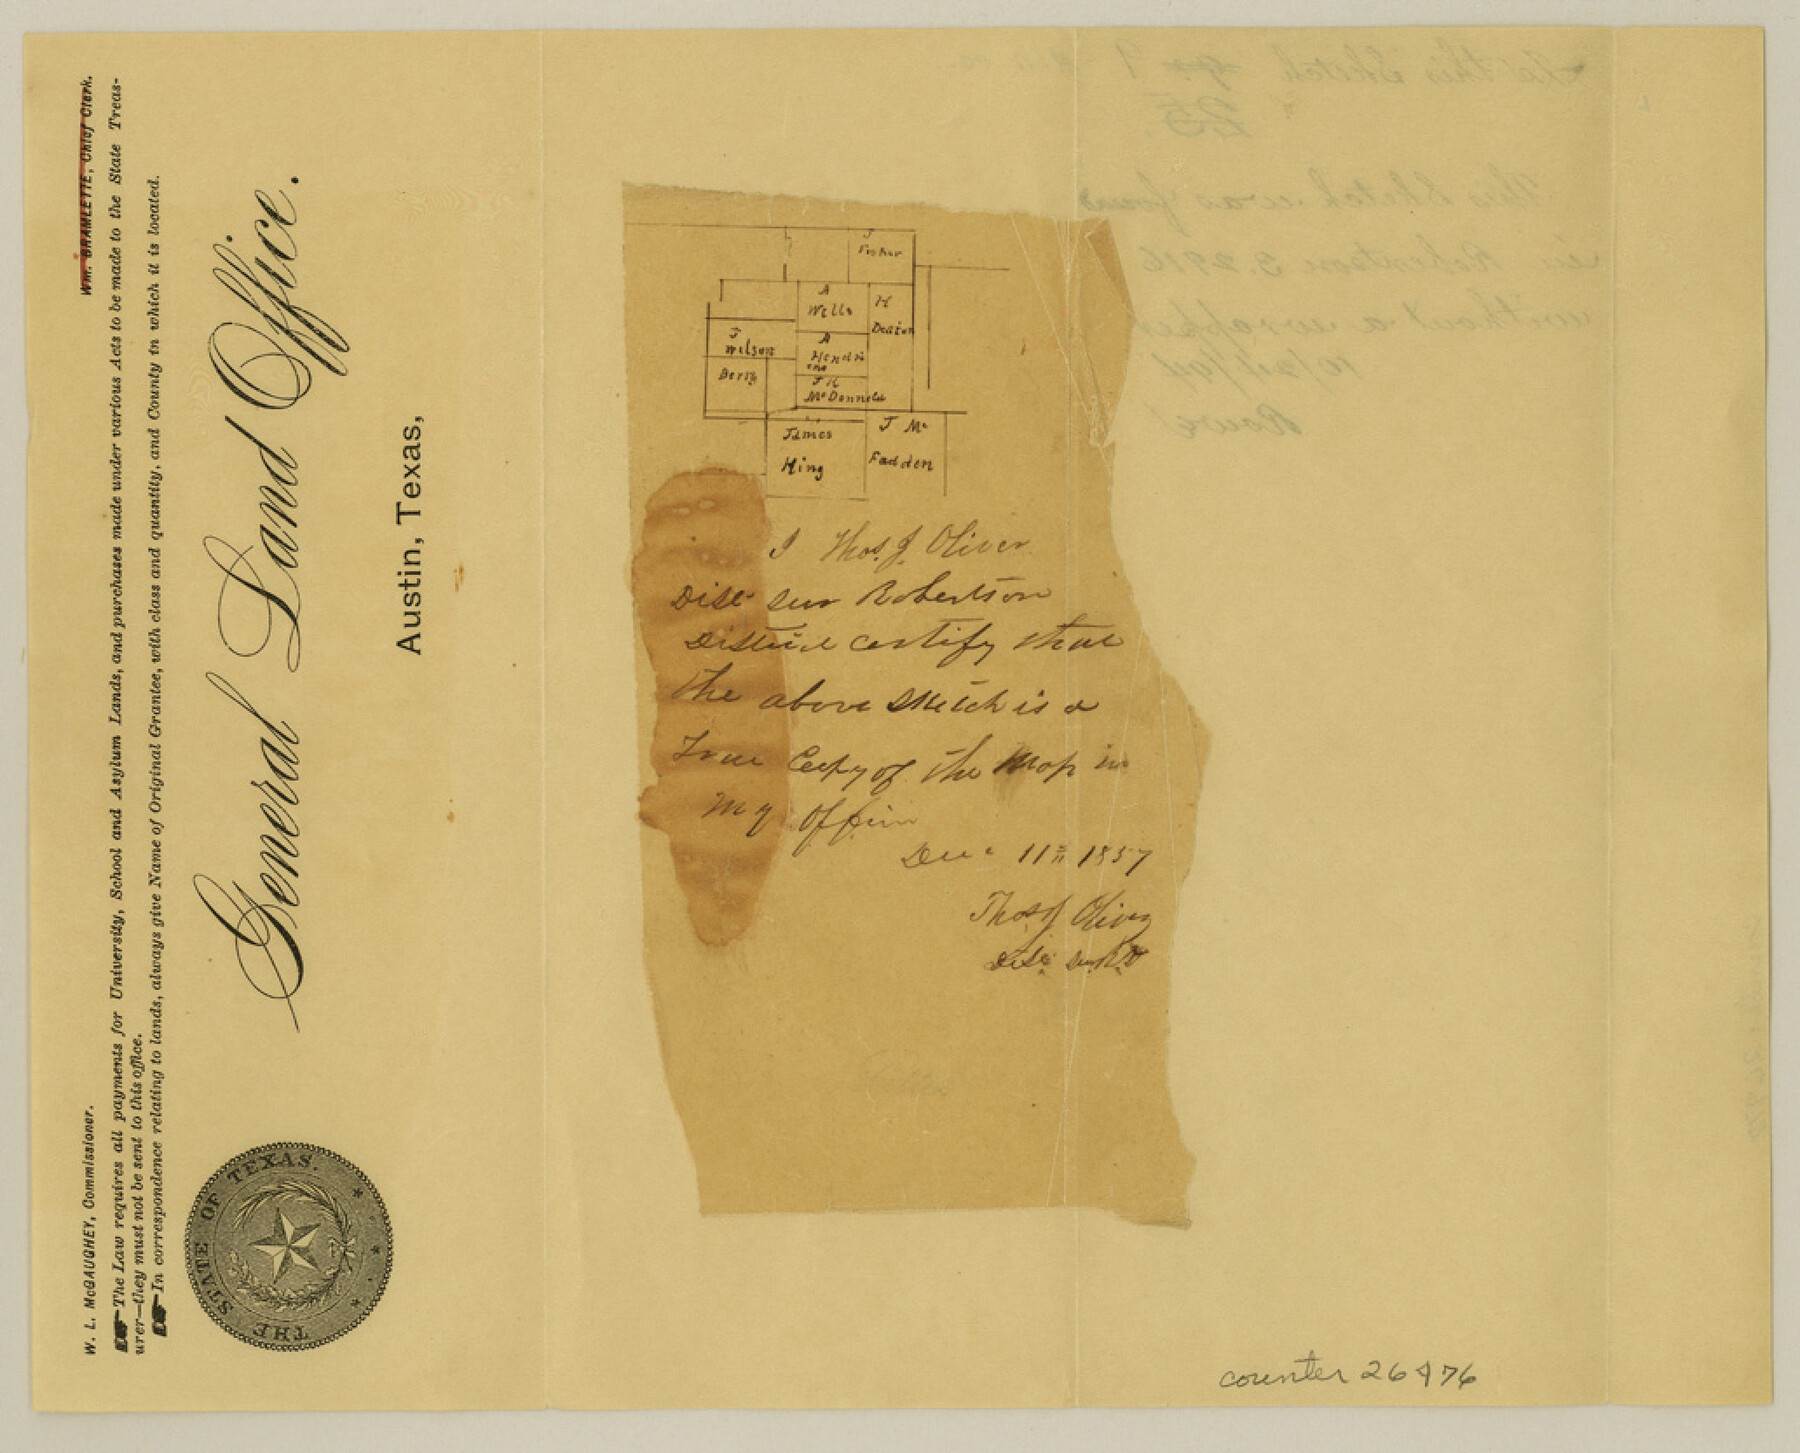 W. L. McGAUGHEY, Commissioner.
Wm. BRAMLETTE, Chief Clerk.
The Law requires all payments for University, School and Asylum Lands, and purchases made under various Acts to be made to the State Treas-
urer—they must not be sent to this office.
In correspondence relating to lands, always give Name of Original Grantee, with class and quantity, and County in which it is located.
General Land Office.
THE STATE OF TEXAS.
Austin, Texas,
J
Fisher
A
Wells
H
Deaton
J
Wilson
A
Hendri
Berry
J H
McDonneld
James
King
J Mc
Fadden
I Thos. J. Oliver
Dist sur Robertson
District certify that
the above sketch is a
True Copy of the Map in
My office
Dec 11th 1857
Thos J Oliver
Dist sur R D
counter 26476
For this Sketch
25
This Sketch was found
in Robertson 3 2916
without a wrapper